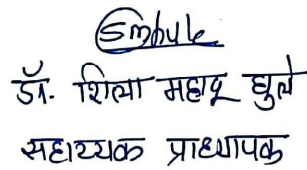 Smhule
डॉ. शिला महादू घुले
सहाय्यक प्राध्यापक